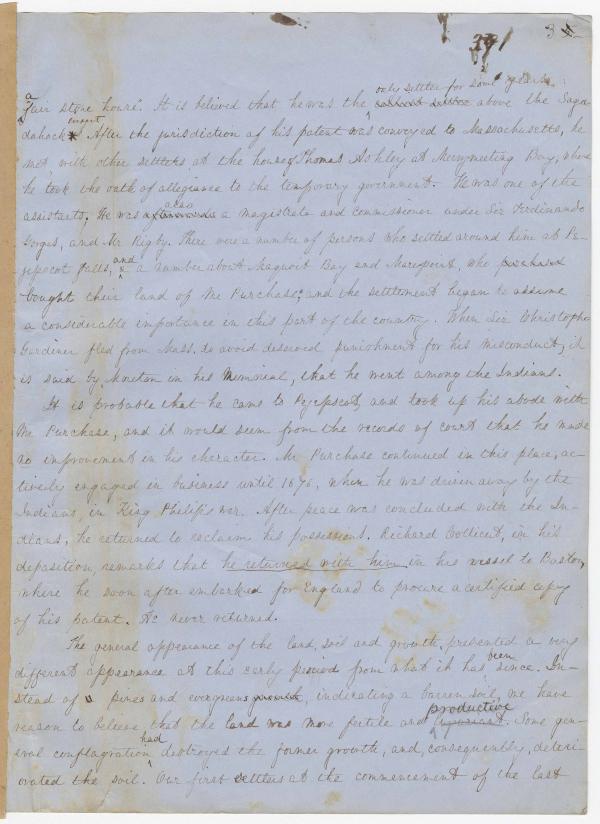 39
3
only settler for some years
a fair stone house". It is belived that he was the earliest settler above the Saga
insert
dahock * After the jurisdiction of his patent was conveyed to Massachusetts, he
met, with other settlers at the house of Thomas Ashley at Merrymeeting Bay, where
he took the oath of allegiance to the temporary government. He was one of the
also
assistants. He was afterwards a magistrate and commissioner under Sir Ferdinando
Gorges, and Mr Rigby. There were a number of persons who settled around him at Pe-
and
jepscot falls, a number about Maquoit Bay and Marepoint, who purchased
bought their land of Mr Purchase, and the settlement began to assume
a considerable importance in this part of the country. When Sir Christopher
Gardiner fled from Mass. to avoid deserved punishment for his misconduct, it
is said by Moreton in his Memorial, that he went among the Indians.
It is probable that he came to Pejepscot, and took up his abode with
Mr Purchase, and it would seem from the records of court that he made
no improvement in his character. Mr Purchase continued in this place, ac-
tively engaged in business until 1676, when he was driven away by the
Indians, in King Philip's war. After peace was concluded with the In-
dians, he returned to reclaim his possessions. Richard Collicut, in his
deposition, remarks that he returned with him in his vessel to Boston,
where he soon after embarked for England to procure a certified copy
of his patent. He never returned.
The general appearance of the land, soil and growth, presented a very
been
different appearance at this early period from what it has since. In-
stead of pines and evergreens growth, indicating a barren soil, we have
productive
reason to believe, that the land was more fertile and Some gen-
had
eral conflagration destroyed the former growth, and, consequently, deteri-
orated the soil. Our first settlers at the commencement of the last